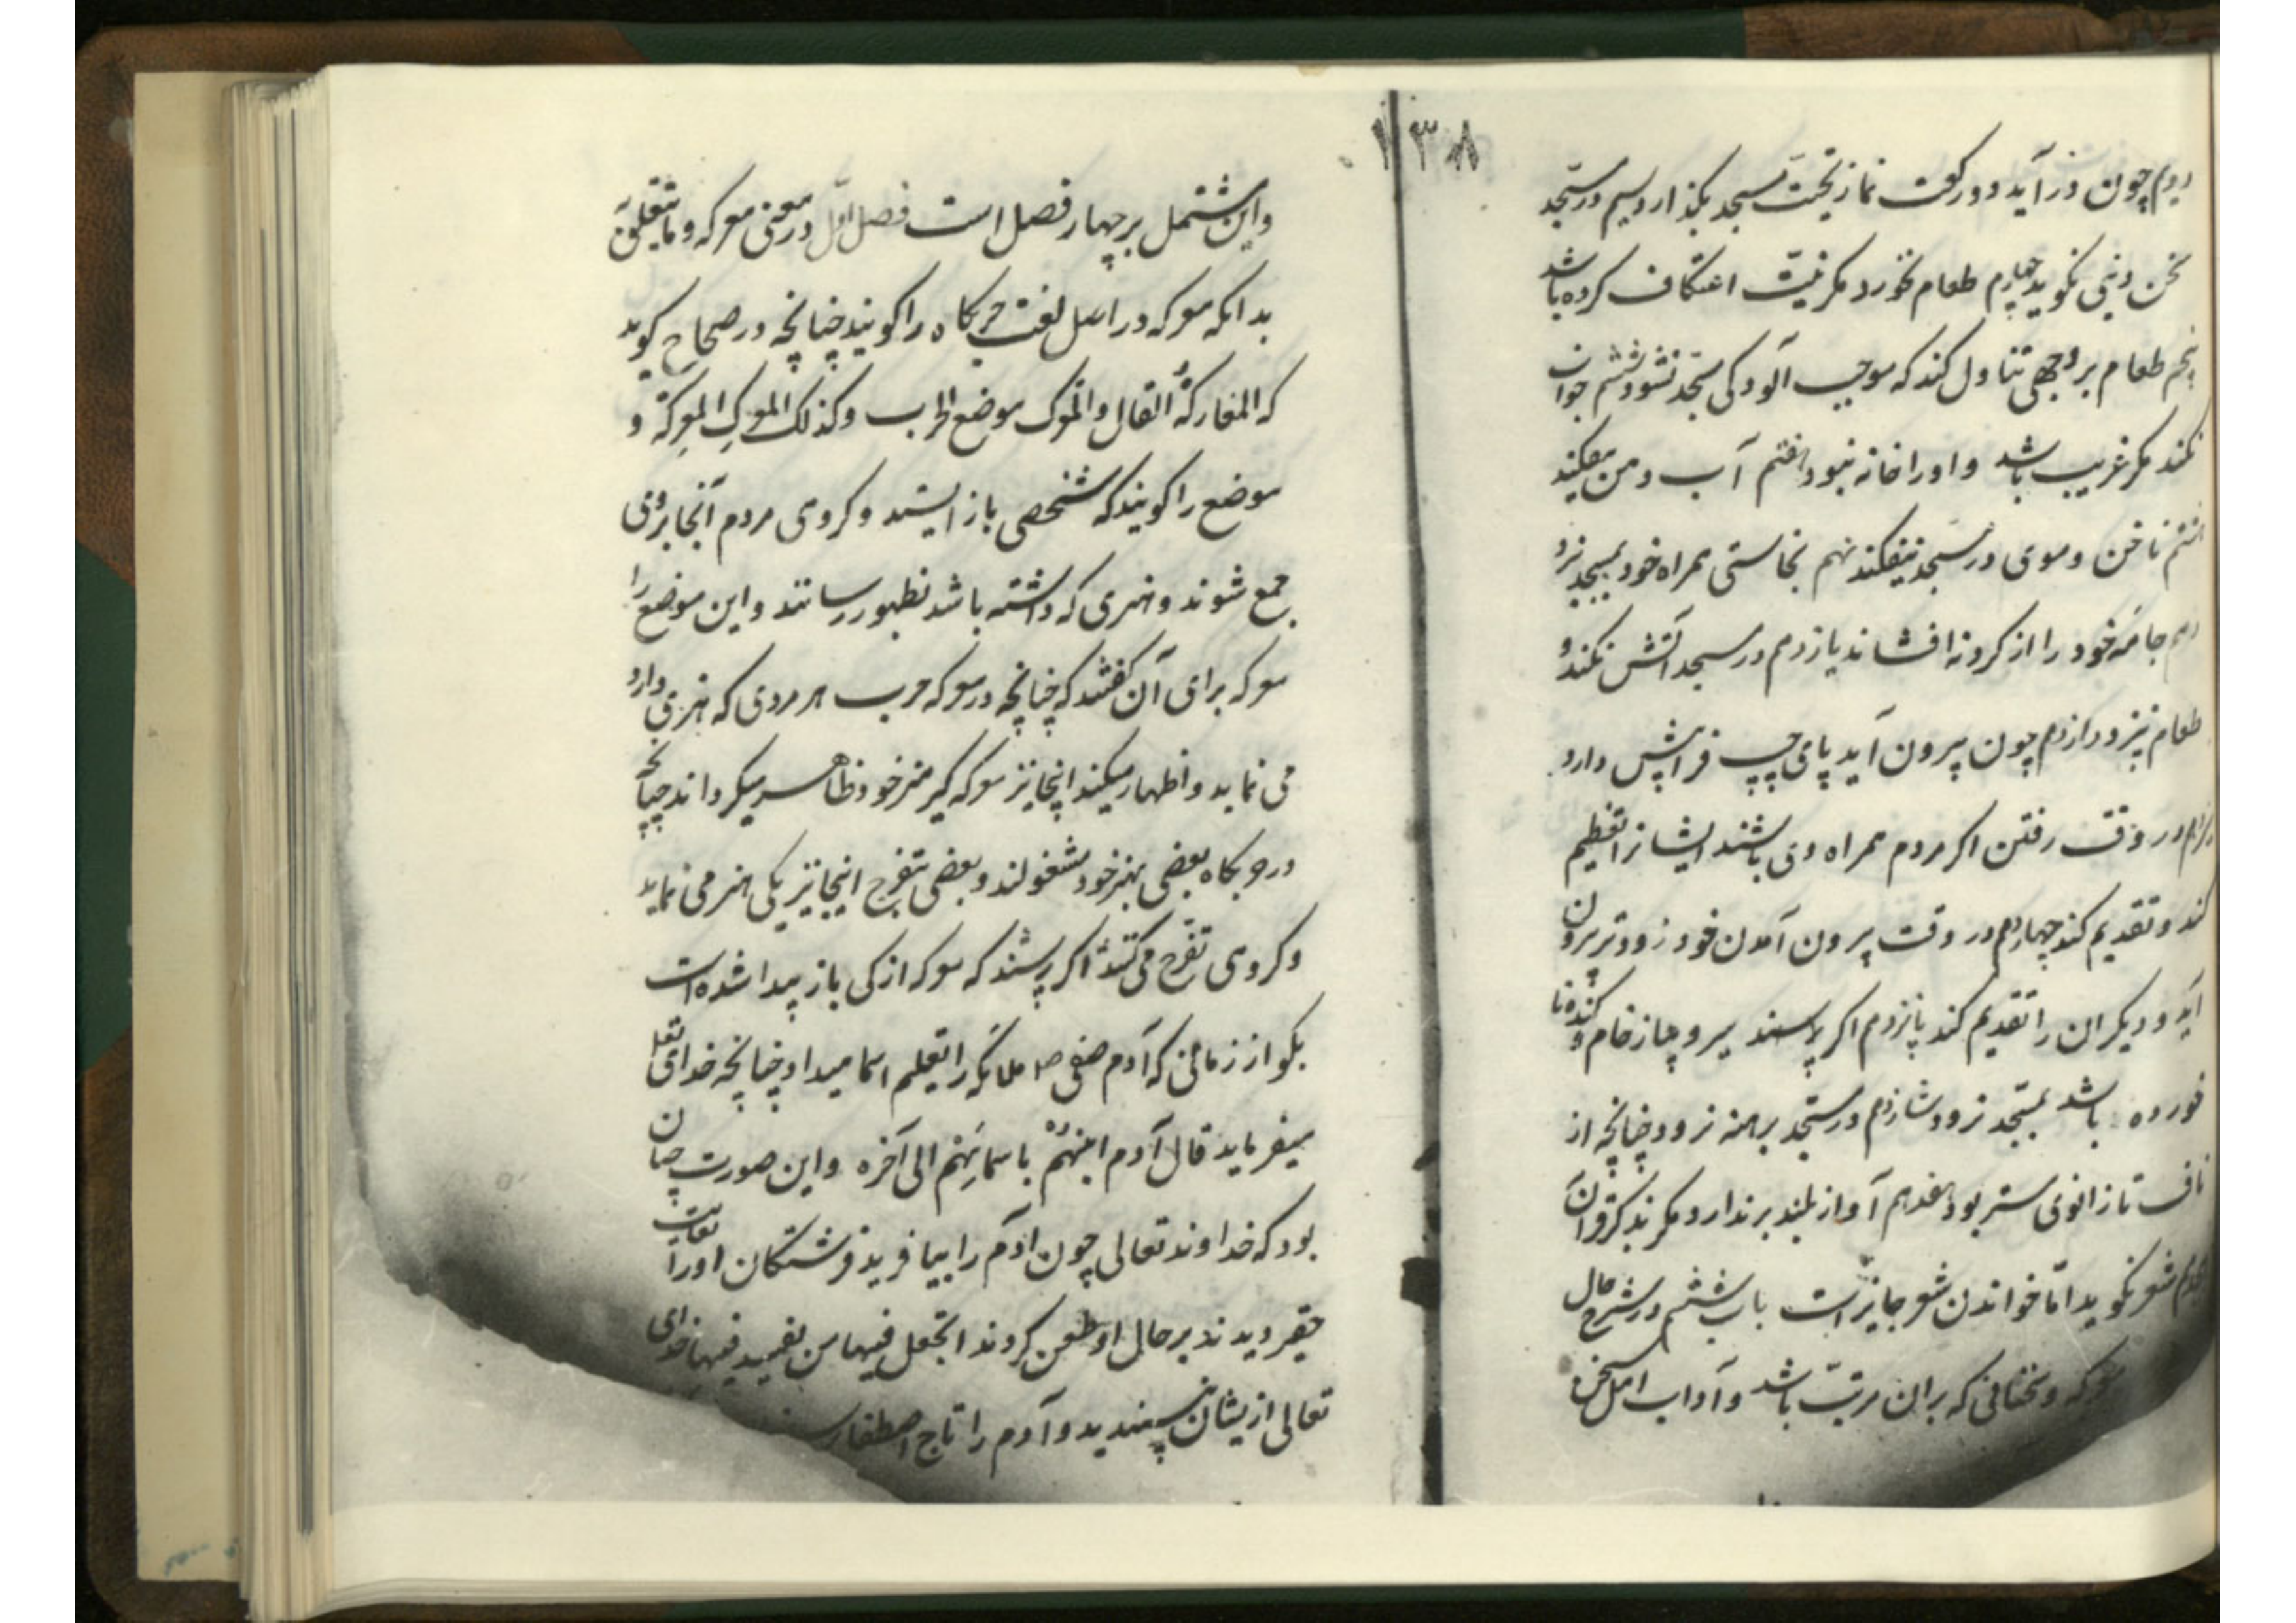 ۱۳۸
دویم چون درآید دو رکعت نماز تحیّت مسجد بگذارد سیم در مسجد
سخن دنیی نکوید چهارم طعام نخورد مکر نیّت اعتکاف کرده باشد
پنجم طعام بر وجهی تناول کند که موجب آلودکی مسجد نشود ششم خواب
نکند مکر غریب باشد و اورا خانه نبود هفتم آب دهن نیفکند
هشتم ناخن و موی در مسجد نیفکند نهم نجاستی همراه خود بمسجد نبرد
دهم جامهٔ خود را از کرد نه افشاند یازدهم در مسجد آتش نکند و
طعام نپزد دوازدهم چون بیرون آید پای چپ فراپیش دارد
در وقت رفتن اکر مردم همراه وی باشند ایشانرا تعظیم
کند و تقدیم کند چهاردهم در وقت بیرون آمدن خود زودتر بیرون
آید و دیکران را تقدیم کند پانزدهم اکر سیر و پیاز خام و کنده‌نا
خورده باشد بمسجد نرود شانزدهم در مسجد برهنه نرود چنانچه از
ناف تا زانوی ستر بود هفدهم آواز بلند برندارد مکر بذکر و قرآن
هجدهم شعر نکوید امّا خواندن شعر جایز است باب ششم در شرح حال
معرکه و سخنانی که بران مرتبّ باشد و آداب اهل سخن
واین مشتمل بر چهار فصل است فصل اوّل در معنی معرکه و ما یتعلق به
بدانکه معرکه در اصل لغت حربکاه را کویند چنانچه در صحاح کوید
که المعارکةُ القتال والمعرک موضع الحرب وکذلک المعرک المعرکة و
موضع را کویند که شخصی باز ایستد و کروهی مردم آنجا بروی
جمع شوند و هنری که داشته باشد بظهور رسانند واین موضع را
معرکه برای آن کفتند که چنانچه در معرکه حرب هر مردی که هنری دارد
می نماید و اظهار میکند اینجا نیز معرکه کیر هنر خود ظاهر میکرداند چنانچه
در حربکاه بعضی بهنر خود مشغولند و بعضی بتفرج اینجا نیز یکی هنر می نماید
و کروهی تفرّج می کنند اکر پرسند که معرکه از کی باز پیدا شده است
بکو از زمانی که آدم صفی ملائکه را تعلیم اسما میداد چنانچه خدای تعالی
میفرماید قال آدم انبئهُمْ باسمائِهم الی آخره واین صورت چنان
بود که خداوند تعالی چون آدم را بیافرید فرشتکان اورا بغایت
حقیر دیدند بر حال او طعن کردند اتجعل فیها من یفسد فیها خدای
تعالی ازیشان نپسندید و آدم را تاج اصطفا بر سر